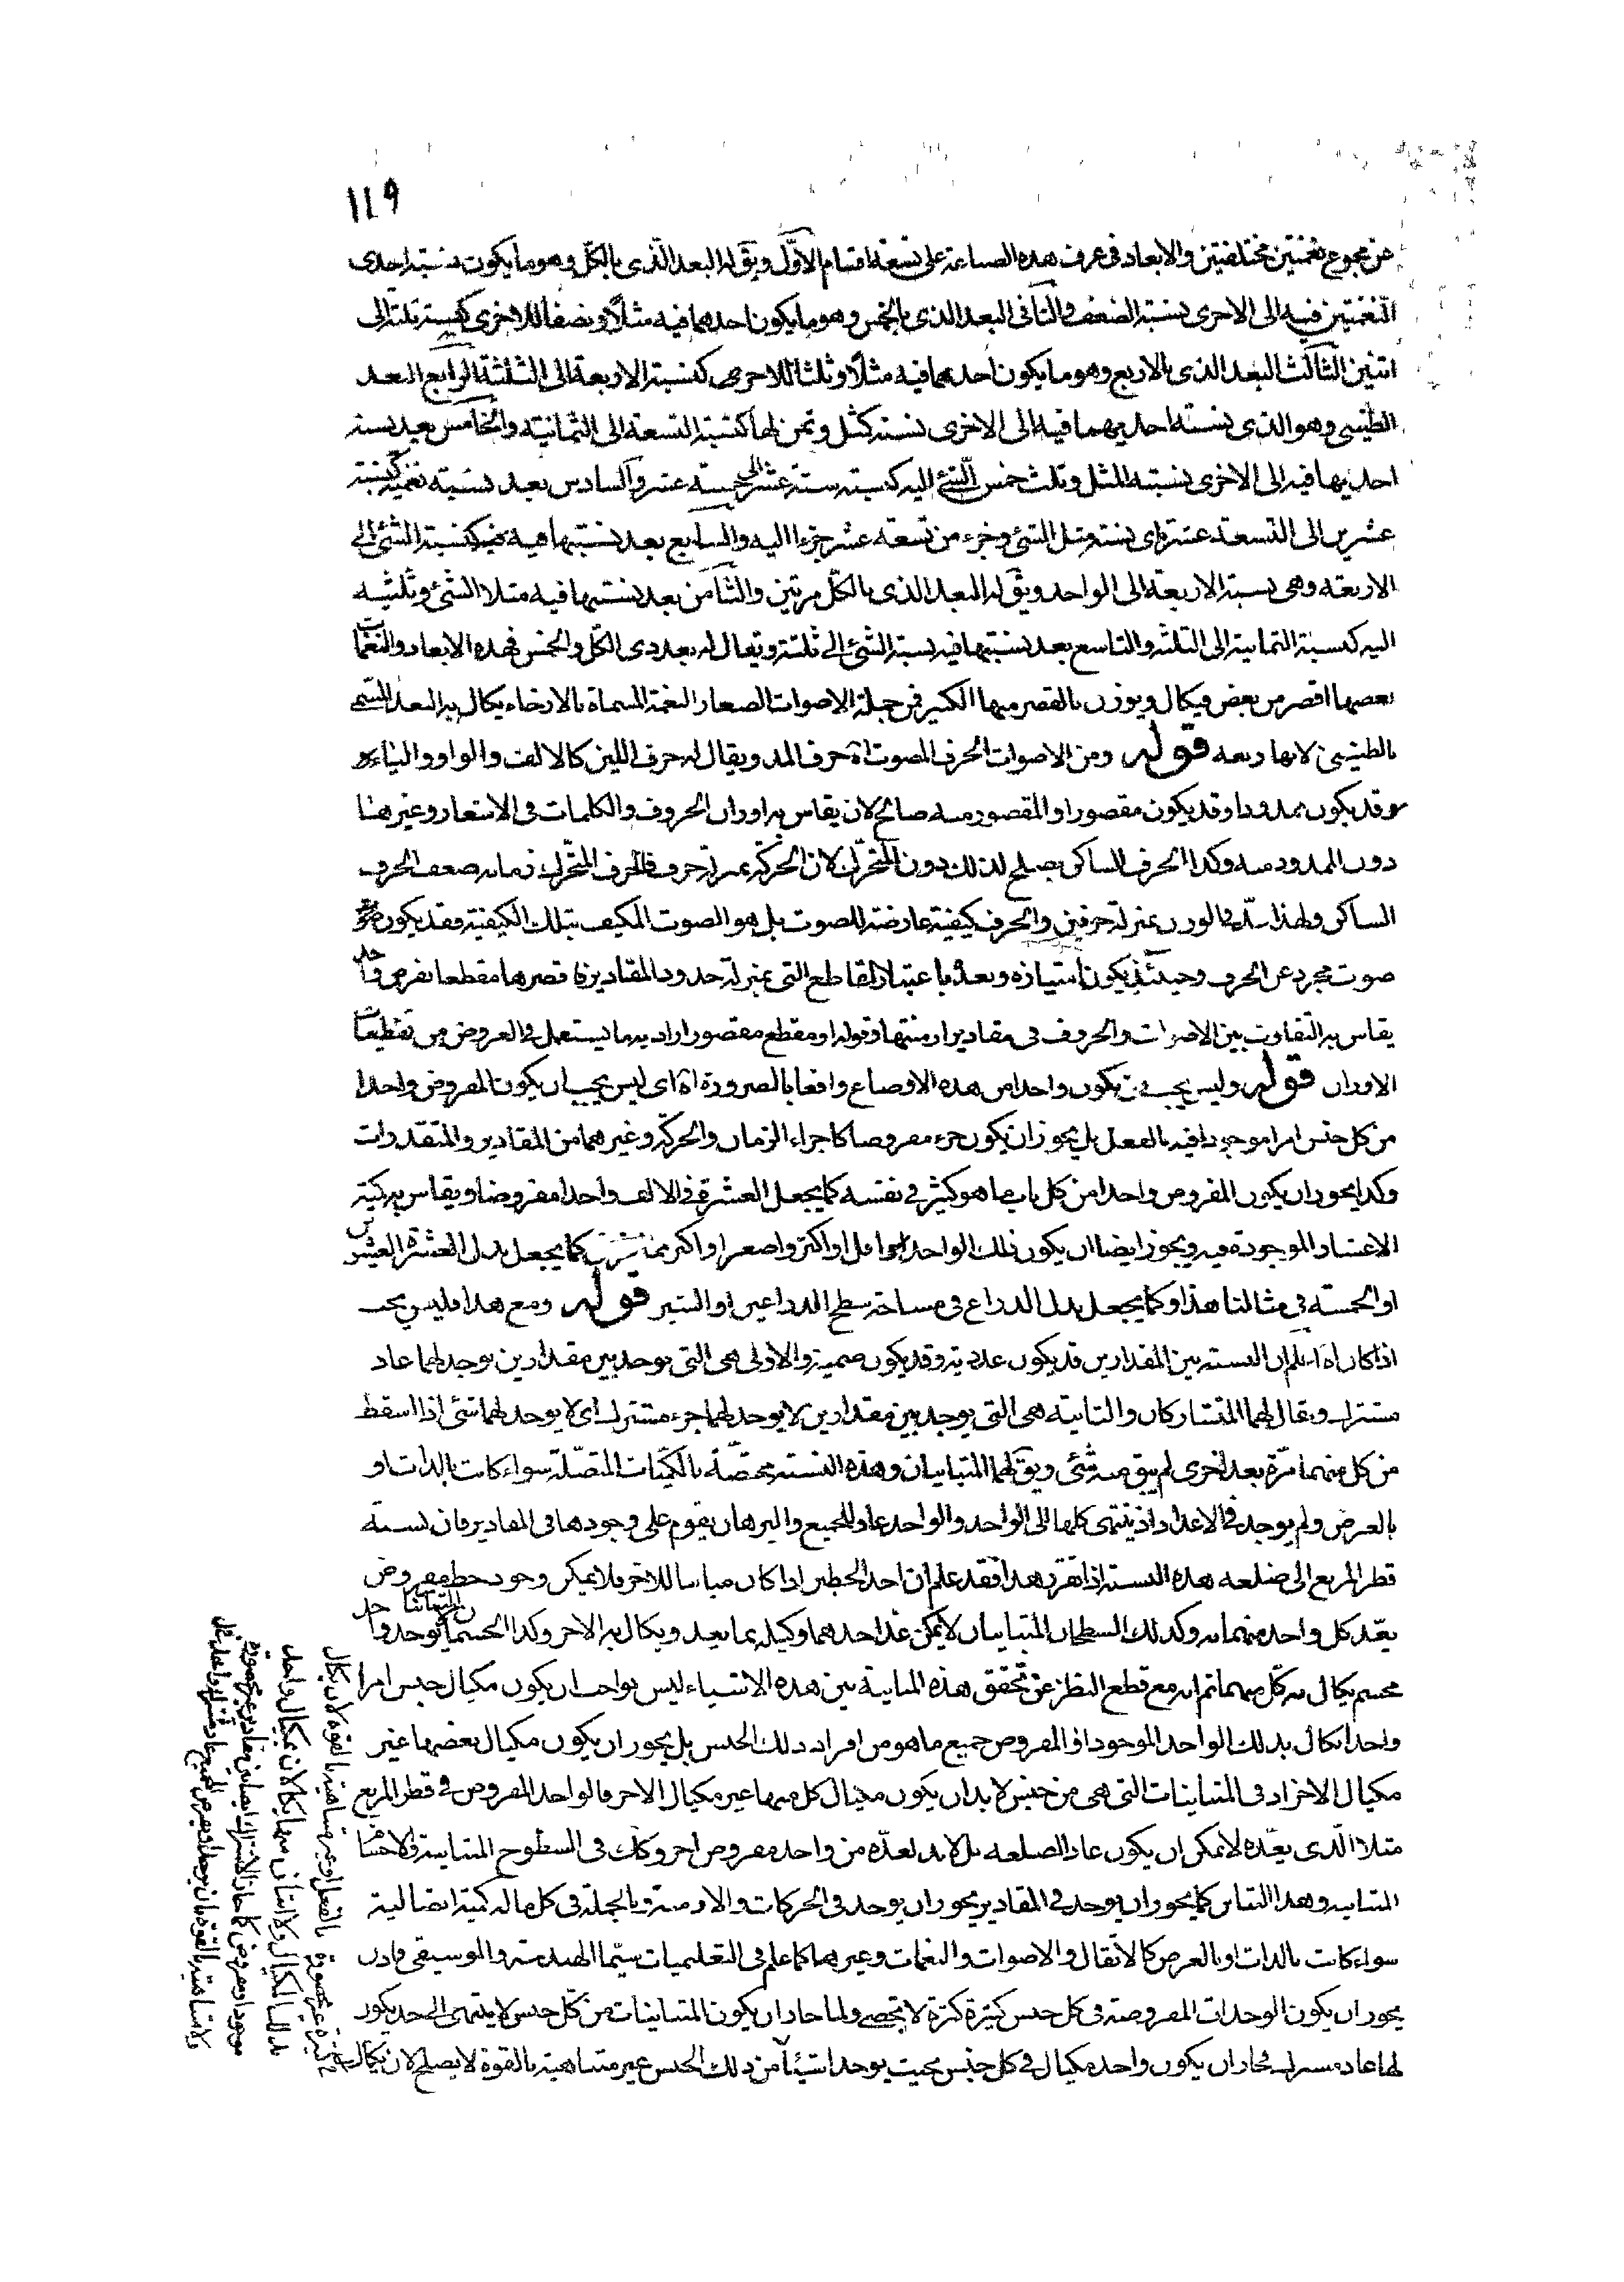 ١١٩
عن مجموع نغمتين مختلفتين والابعاد فى عرف هذه الصناعة على تسعة اقسام الاوّل ويق له البعد الّذى بالكلّ وهو ما يكون نسبة احدى
النّغمتين فيه الى الاخرى نسبة الضعف والثانى البعد الذى بالخمس وهو ما يكون احدهما فيه مثلاً ونصفاً للاخرى كنسبة ثلثة الى
اثنين الثالث البعد الذى بالاربع وهو ما يكون احدهما فيه مثلاً وثلثا للاخرى كنسبة الاربعة الى الثلثة الرابع البعد
الطنينى وهو الذى نسبة احديهما فيه الى الاخرى نسبة كمثل وثمن لها كنسبة التسعة الى الثمانية والخامس بعد نسبة
احديهما فيه الى الاخرى نسبة المثل وثلث خمس الشئ اليه كنسبة ستة عشر الى خمسة عشر والسادس بعد نسبة نغميه كنسبة
عشرين الى التسعة عشر اى نسبة مثل الشئ وجزء من تسعة عشر جزءا اليه والسابع بعد نسبتهما فيه كنسبة الشئ الى
الاربعة وهى نسبة الاربعة الى الواحد ويق له البعد الذى بالكلّ مرتين والثامن بعد نسبتهما فيه مثلا الشئ وثلثيه
اليه كنسبة الثمانية الى الثلثة والتاسع بعد نسبتهما فيه نسبة الشئ الى ثلثة ويقال له بعد ذى الكلّ والخمس فهذه الابعاد والنغمات
بعضها اقصر من بعض فيكال ويوزن بالقصر منها الكبير فمن جملة الاصوات الصغار النغمة المسماة بالارخاء يكال به البعد المسمى
بالطنينى لانها ربعه قوله ومن الاصوات الحرف المصوت اه حرف المد ويقال له حرف اللين كالالف والواو والياء
وقد يكون ممدودا وقد يكون مقصورا والمقصور منه صالح لان يقاس به اوزان الحروف والكلمات فى الاشعار وغيرها
دون الممدود منه وكذا الحرف الساكن يصلح لذلك دون المتحرّك لان الحركة بمنزلة حرف فالحرف المتحّرك زمانه ضعف الحرف
الساكن ولهذا يعدّ فى الوزن بمنزلة حرفين والحرف كيفية عارضة للصوت بل هو الصوت المكيف بتلك الكيفية فقد يكون
صوت مجرد عن الحرف وحينئذ يكون امتيازه وبعده باعتبار المقاطع التى بمنزلة حدود المقادير فاقصرها مقطعا يفرض واحد
يقاس به التفاوت بين الاصوات والحروف فى مقادير ازمنتها وقوله او مقطع مقصور اراد به ما يستعمل فى العروض من تقطيعات
الاوزان قوله وليس يجب ان يكون واحدا من هذه الاوضاع واقعا بالضرورة اه اى ليس يجب ان يكون المفروض واحدا
من كل جنس امرا موجودا فيه بالفعل بل يجوز ان يكون جزء مفروضا كاجزاء الزمان والحركة وغيرهما من المقادير والمتقدرات
وكذا يجوز ان يكون المفروض واحدا من كل باب ما هو كثير فى نفسه كما يجعل العشرة فى الالف واحدا مفروضا ويقاس به كمية
الاعشار الموجودة فيه ويجوز ايضا ان يكون ذلك الواحد اقل او اكثر واصغر او اكبر مما فرض كما يجعل بدل العشرة العشرين
او الخمسة فى مثالنا هذا وكما يجعل بدل الذراع فى مساحة سطح الذراعين او الشبر قوله ومع هذا فليس يجب
اذا كان اه اعلم ان النسبة بين المقدارين قد يكون عددية وقد يكون صمية والاولى هى التى يوجد بين مقدارين يوجد لهما عاد
مشترك ويقال لهما المتشاركان والثانية هى التى يوجد بين مقدارين لا يوجد لهما جزء مشترك اى لا يوجد لهما شئ اذا اسقط
من كل منهما مرّة بعد اخرى لم يبق منه شئ ويق لهما المتباينان وهذه النسبة مختصّة بالكميّات المتصّلة سواء كانت بالذات او
بالعرض ولم يوجد فى الاعداد اذ ينتهى كلها الى الواحد والواحد عاد للجميع والبرهان يقوم على وجودها فى المقادير فان نسبة
قطر المربع الى ضلعه هذه النسبة اذا تقرر هذا فقد علم ان احد الخطين اذا كان مباينا للاخر فلا يمكن وجود خط مفروض
يعّد كل واحد منهما به وكذلك السطحان المتباينان لا يمكن عدّ احدهما وكيله بما يعد ويكال به الاخر وكذا الجسمان المتباينان لا يوجد واحد
مجسم يكال به كل منهما ثم انه مع قطع النظر عن تحقق هذه المباينة بين هذه الاشياء ليس بواجب ان يكون مكيال جنس امرا
واحدا يكال بذلك الواحد الموجود او المفروض جميع ما هو من افراد ذلك الجنس بل يجوز ان يكون مكيال بعضها غير
مكيال الاخر اذ فى المتباينات التى هى من جنس لا بد ان يكون مكيال كل منها غير مكيال الاخر فالواحد المفروض فى قطر المربع
مثلا الّذى يعّده لا يمكن ان يكون عادا لضلعه بل لا بد لعدّه من واحد مفروض اخر وكك فى السطوح المتباينة والاجسام
المتباينة وهذا التباين كما يجوز ان يوجد فى المقادير يجوز ان يوجد فى الحركات والازمنة وبالجملة فى كل ما له كمية اتصالية
سواء كانت بالذات او بالعرض كالاثقال والاصوات والنغمات وغيرها كما علم فى التعليميات سيّما الهندسة والموسيقى فاذن
يجوز ان يكون الوحدات المفروضة فى كل جنس كثيرة كثرة لا تحصى ولما جاز ان يكون المتباينات من كلّ جنس لا ينتهى الى حد يكون
لها عاد مشترك فجاز ان يكون واحد مكيال فى كل جنس بحيث يوجد اشياء من ذلك الجنس غير متناهية بالقوة لا يصلح لان يكال